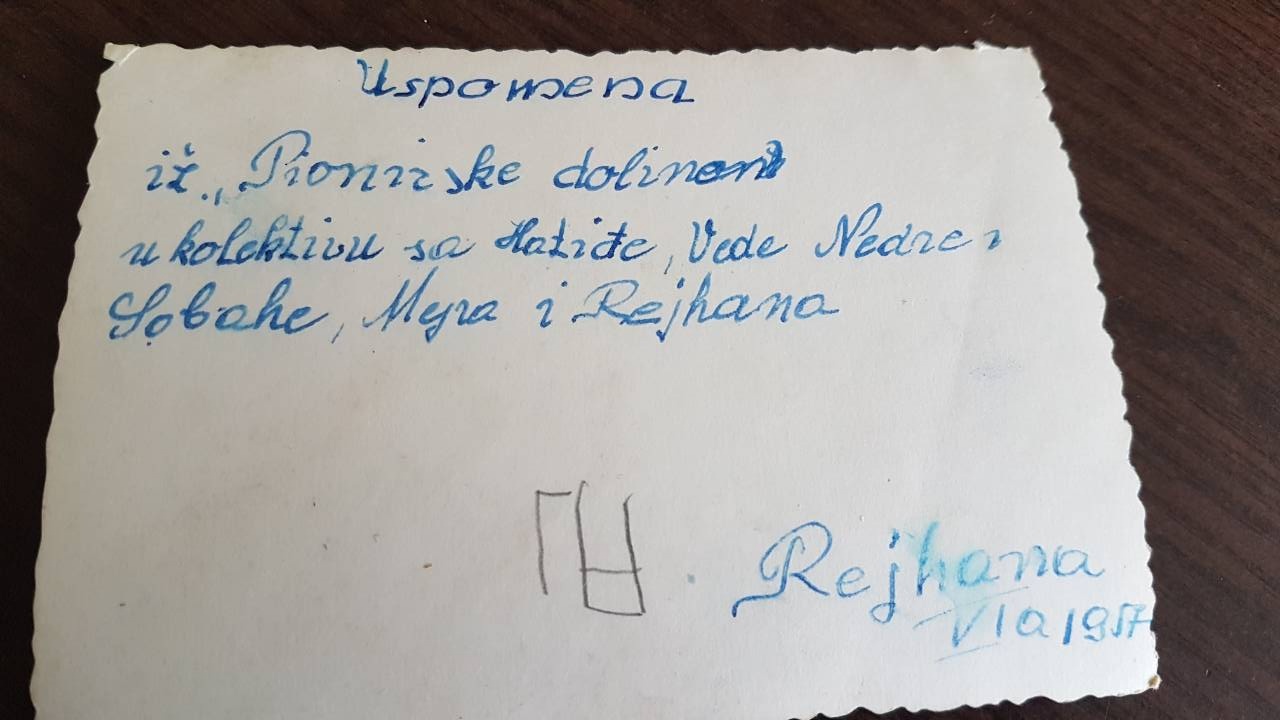 Uspomena
iz „Pionirske doline
u kolektivu sa Hatiđe, Vede Nedre i
Sabahe, Mejra i Rejhana
Rejhana
VIa 1957